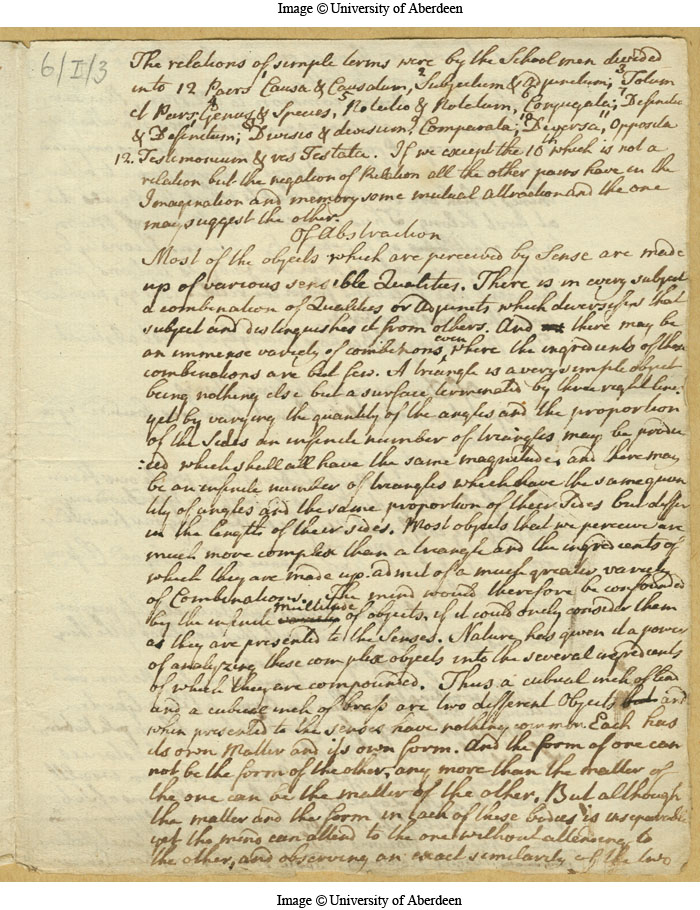 Image © University of Aberdeen
6/I/3
The relations of simple terms were by the School men divided
into 12 Paers 1 Causa & Causatum, 2 Subjectum & adjunctum; 3 Totum
et Pars; 4 Genus & Species, 5 & 6 Conjugata; 7 Definitio
& Definitum; 8 Divisio & divisum, 9 Comparata; 10 Diversa, 11 Opposita
12. Testimonium & res Testata. If we except the 10th which is not a
relation but the negation of Relation all the other pairs have in the
Imagination and memory some mutual attraction and the one
may suggest the other.
Of Abstraction
Most of the objects which are perceived by Sense are made
up of various sensible Qualities. There is in every subject
a combination of Qualities or adjuncts which diversifys that
subject and distinguishes it from others. And there may be
an immense variety of combitions even where the ingredients of these
combinations are but few. A triangle is a very simple object
being nothing else but a surface terminated by three right lines.
yet by varying the quantity of the angles and the proportion
of the Sides an infinite number of triangles may be produ
:ced which shall all have the same magnitude, and there may
be an infinite number of triangles which have the same quan
tity of angles and the same proportion of their Sides but differ
in the length of their sides. Most objects that we perceive are
much more complex than a triangle and the ingredients of
which they are made up admit of a much greater variety
of Combinations. The mind would therefore be confounded
by the infinite multitude of objects, if it could only consider them
as they are presented to the Senses. Nature has given it a power
of analyzing these complex objects into the several ingredients
of which they are compounded. Thus a cubical inch of lead
and a cubical inch of brass are two different Objects but and
when presented to the senses have nothing common. Each has
its own Matter and its own form. And the form of one can
not be the form of the other, any more than the matter of
the one can be the matter of the other. But although
the matter and the form in each of these bodies is inseparable
yet the mind can attend to the one without attending to
the other, and observing an exact similarity of the two
Image © University of Aberdeen